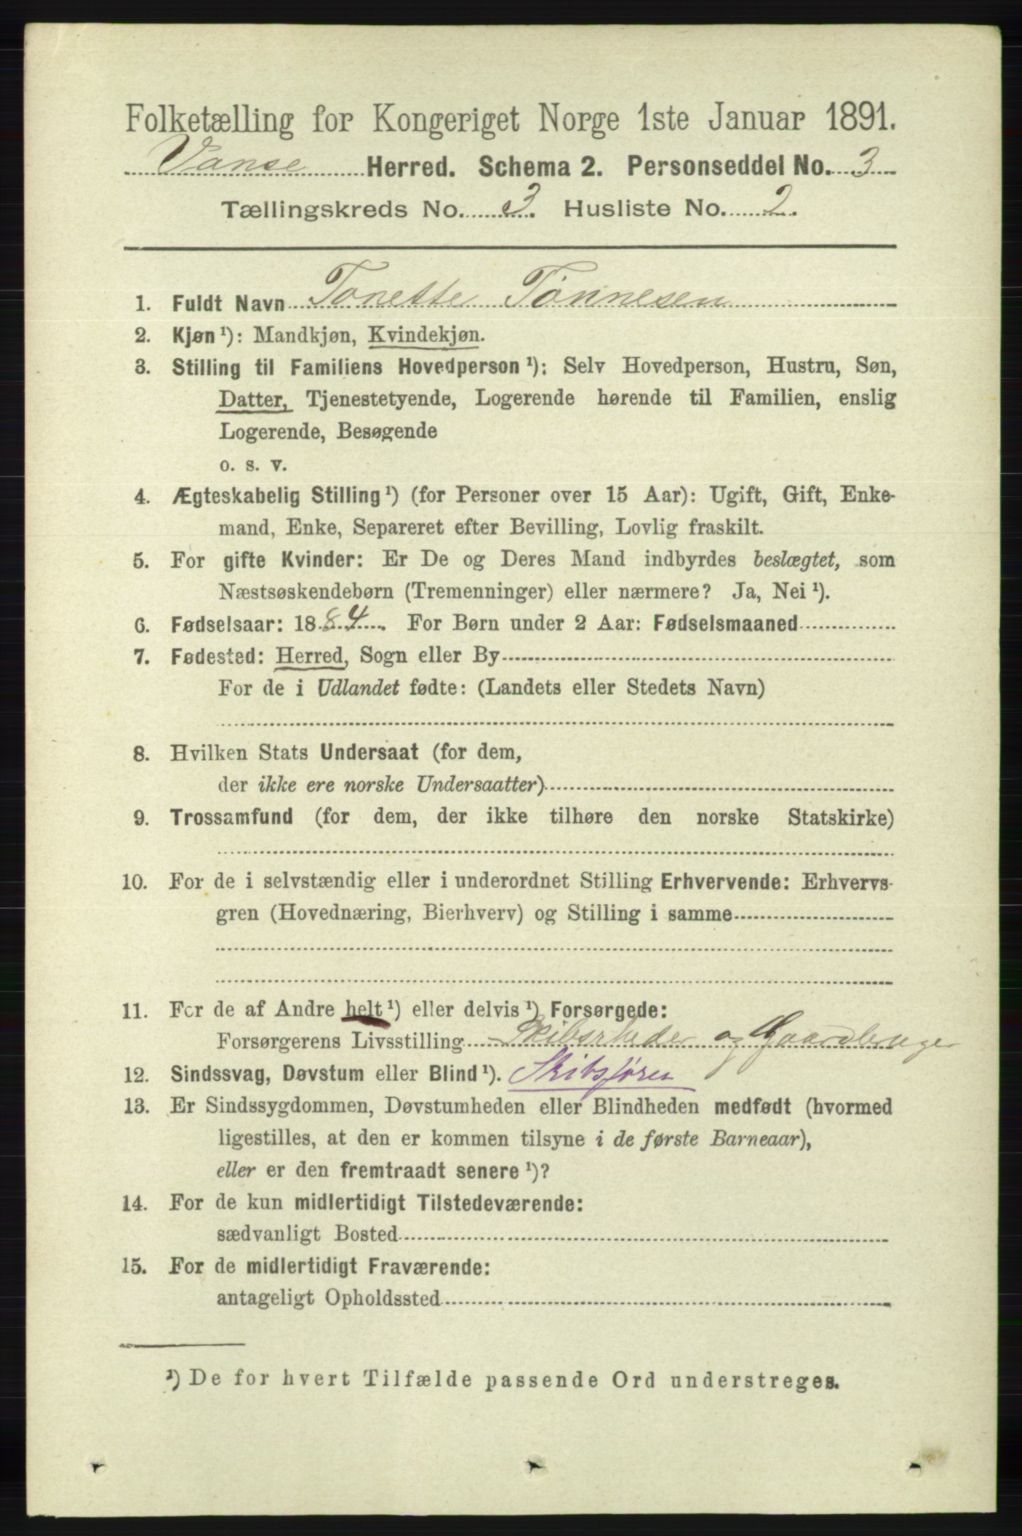 Folketælling for Kongeriget Norge 1ste Januar 1891.
Vanse Herred. Schema 2. Personseddel No. 3
Tællingskreds No. 3. Husliste No. 2.
1. Fuldt Navn Tonette Tønnesen
2. Kjøn ¹): Mandkjøn, Kvindekjøn.
3. Stilling til Familiens Hovedperson ¹): Selv Hovedperson, Hustru, Søn,
Datter, Tjenestetyende, Logerende hørende til Familien, enslig
Logerende, Besøgende
o. s. v.
4. Ægteskabelig Stilling ¹) (for Personer over 15 Aar): Ugift, Gift, Enke-
mand, Enke, Separeret efter Bevilling, Lovlig fraskilt.
5. For gifte Kvinder: Er De og Deres Mand indbyrdes beslægtet, som
Næstsøskendebørn (Tremenninger) eller nærmere? Ja, Nei ¹).
6. Fødselsaar: 1884. For Børn under 2 Aar: Fødselsmaaned
7. Fødested: Herred, Sogn eller By
For de i Udlandet fødte: (Landets eller Stedets Navn)
8. Hvilken Stats Undersaat (for dem,
der ikke ere norske Undersaatter)
9. Trossamfund (for dem, der ikke tilhøre den norske Statskirke)
10. For de i selvstændig eller i underordnet Stilling Erhvervende: Erhvervs-
gren (Hovednæring, Bierhverv) og Stilling i samme
11. For de af Andre helt ¹) eller delvis ¹) Forsørgede:
Forsørgerens Livsstilling Skibsrheder og Gaardbruger
12. Sindssvag, Døvstum eller Blind ¹). Skibsfører
13. Er Sindssygdommen, Døvstumheden eller Blindheden medfødt (hvormed
ligestilles, at den er kommen tilsyne i de første Barneaar),
eller er den fremtraadt senere ¹)?
14. For de kun midlertidigt Tilstedeværende:
sædvanligt Bosted
15. For de midlertidigt Fraværende:
antageligt Opholdssted
¹) De for hvert Tilfælde passende Ord understreges.